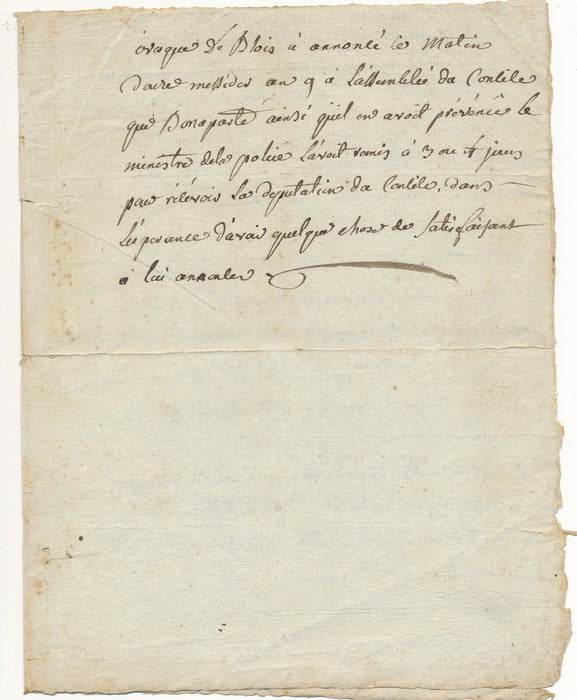 évaque de Blois à annonté ce matin
douze messidor an 9 à l'assemblée du Concile
que Bonaparte ainsi qu'il en avoit prévenue le
ministre de la police l'avoit remis à 3 ou 4 jours
pour recevois la députation du Concile, dans
l'ésperance d'avoir quelque chose de satisfaisant
à lui annoncer